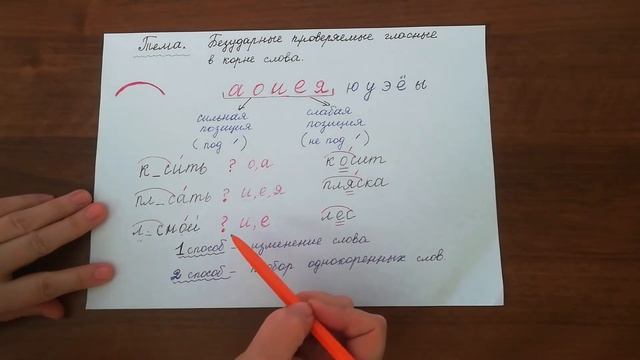 Тема. Безударные проверяемые гласные
в корне слова.
а о и е я ю у э ё ы
сильная позиция (под ′) слабая позиция (не под ′)
к_си́ть ? о, а ко́сит
пл_са́ть ? и, е, я пля́ска
л_сно́й ? и, е лес
1 способ – изменение слова
2 способ – однокоренных слов.